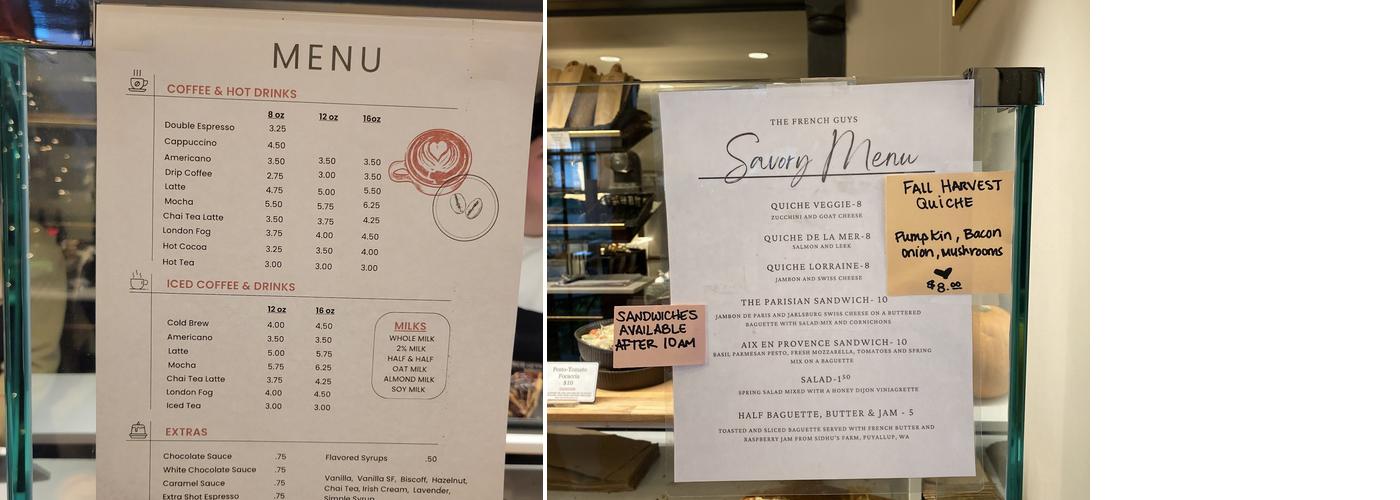 MENU
COFFEE & HOT DRINKS
8 oz 12 oz 16oz
Double Espresso 3.25
Cappuccino 4.50
Americano 3.50 3.50 3.50
Drip Coffee 2.75 3.00 3.50
Latte 4.75 5.00 5.50
Mocha 5.50 5.75 6.25
Chai Tea Latte 3.50 3.75 4.25
London Fog 3.75 4.00 4.50
Hot Cocoa 3.25 3.50 4.00
Hot Tea 3.00 3.00 3.00
ICED COFFEE & DRINKS
12 oz 16 oz
Cold Brew 4.00 4.50
Americano 3.50 3.50
Latte 5.00 5.75
Mocha 5.75 6.25
Chai Tea Latte 3.75 4.25
London Fog 4.00 4.50
Iced Tea 3.00 3.00
MILKS
WHOLE MILK
2% MILK
HALF & HALF
OAT MILK
ALMOND MILK
SOY MILK
EXTRAS
Chocolate Sauce .75
White Chocolate Sauce .75
Caramel Sauce .75
Extra Shot Espresso .75
Flavored Syrups .50
Vanilla, Vanilla SF, Biscoff, Hazelnut,
Chai Tea, Irish Cream, Lavender,
Simple Syrup
THE FRENCH GUYS
Savory Menu
QUICHE VEGGIE-8
ZUCCHINI AND GOAT CHEESE
QUICHE DE LA MER-8
SALMON AND LEEK
QUICHE LORRAINE-8
JAMBON AND SWISS CHEESE
THE PARISIAN SANDWICH- 10
JAMBON DE PARIS AND JARLSBURG SWISS CHEESE ON A BUTTERED
BAGUETTE WITH SALAD MIX AND CORNICHONS
AIX EN PROVENCE SANDWICH- 10
BASIL PARMESAN PESTO, FRESH MOZZARELLA, TOMATOES AND SPRING
MIX ON A BAGUETTE
SALAD-1⁵⁰
SPRING SALAD MIXED WITH A HONEY DIJON VINIAGRETTE
HALF BAGUETTE, BUTTER & JAM - 5
TOASTED AND SLICED BAGUETTE SERVED WITH FRENCH BUTTER AND
RASPBERRY JAM FROM SIDHU'S FARM, PUYALLUP, WA
FALL HARVEST
QUICHE
Pumpkin, Bacon
onion, mushrooms
$8.00
SANDWICHES
AVAILABLE
AFTER 10AM
Pesto-Tomato
Focaccia
$10